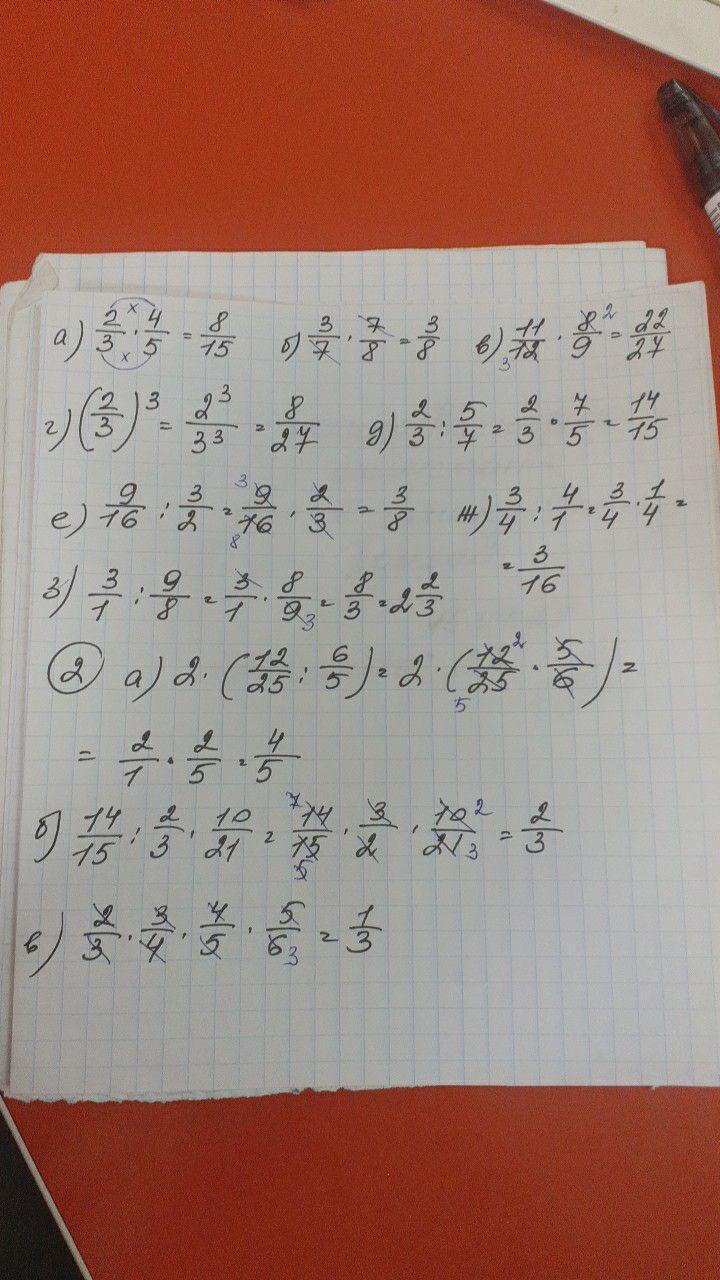 а) 2/3 · 4/5 = 8/15 б) 3/7 · 7/8 = 3/8 в) 11/12 3 · 8/9 2 = 22/27
г) (2/3)³ = 2³/3³ = 8/27 д) 2/3 : 5/7 = 2/3 · 7/5 = 14/15
е) 9/16 : 3/2 = 3 9/16 8 · 2/3 = 3/8 ж) 3/4 : 4/1 = 3/4 · 1/4 =
= 3/16
з) 3/1 : 9/8 = 3/1 · 8/9 3 = 8/3 = 2 2/3
2 а) 2 · (12/25 : 6/5) = 2 · (12 2/25 5 · 5/6) =
= 2/1 · 2/5 = 4/5
б) 14/15 : 2/3 · 10/21 = 7 14/15 5 · 3/2 · 10 2/21 3 = 2/3
в) 2/3 · 3/4 · 4/5 · 5/6 3 = 1/3